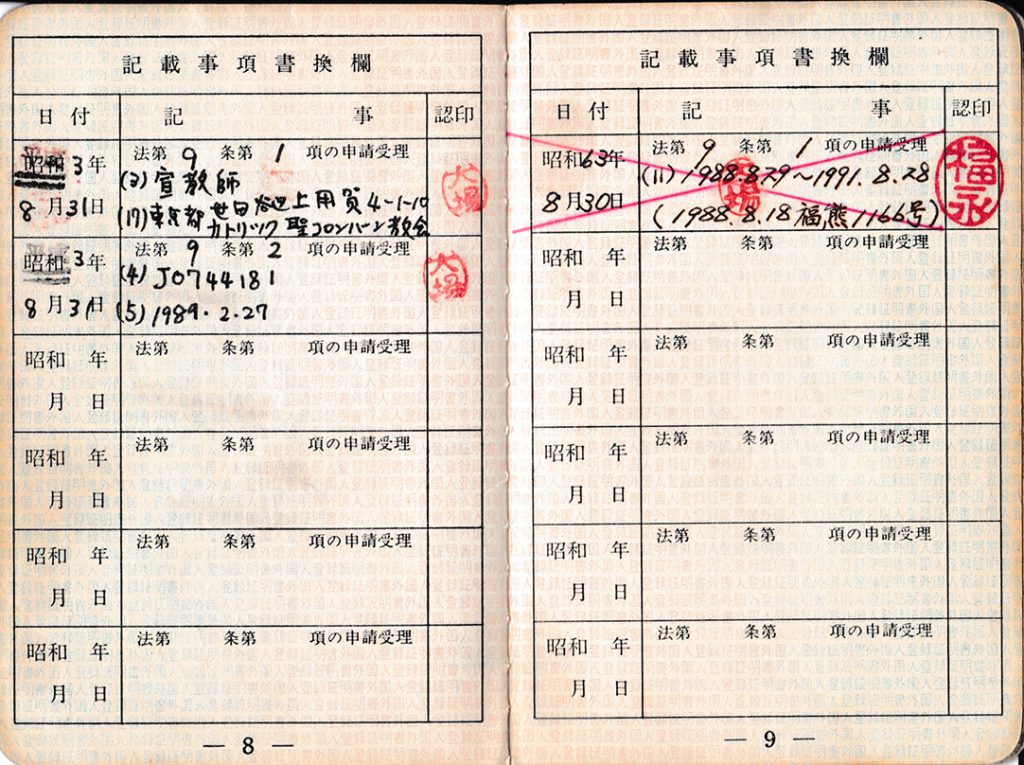 記載事項書換欄
日付 記事 認印
昭和 3年 法第 9 条第 1 項の申請受理
(3) 宣教師
8月31日 (17) 東京都 世田谷区上用賀4-1-10
カトリック 聖コロンバン教会
大場
昭和 3年 法第 9 条第 2 項の申請受理
(4) J0744181
8月31日 (5) 1989・2・27
大場
昭和 年 法第 条第 項の申請受理
月 日
昭和 年 法第 条第 項の申請受理
月 日
昭和 年 法第 条第 項の申請受理
月 日
昭和 年 法第 条第 項の申請受理
月 日
— 8 —
記載事項書換欄
日付 記事 認印
昭和63年 法第 9 条第 1 項の申請受理
(11) 1988.8.29~1991.8.28
8月30日 (1988.8.18 福熊1166号)
福永
昭和 年 法第 条第 項の申請受理
月 日
昭和 年 法第 条第 項の申請受理
月 日
昭和 年 法第 条第 項の申請受理
月 日
昭和 年 法第 条第 項の申請受理
月 日
昭和 年 法第 条第 項の申請受理
月 日
— 9 —